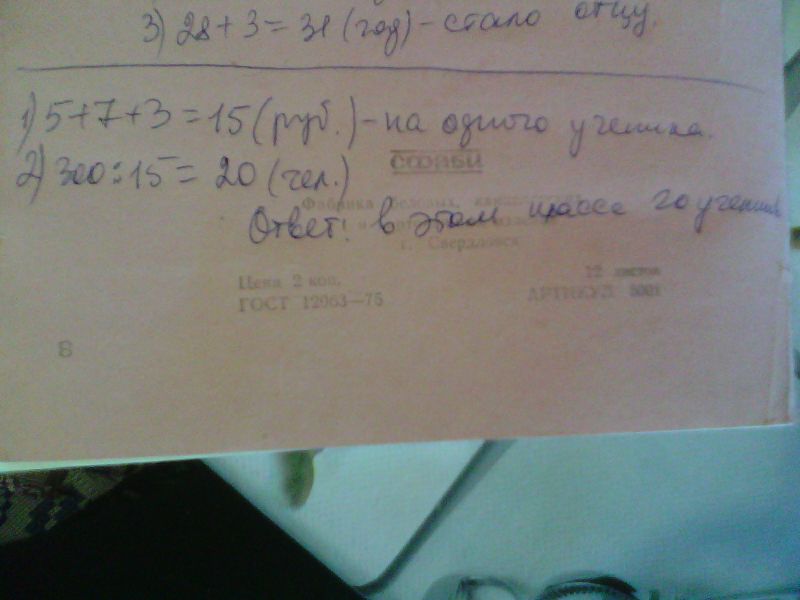 3) 28 + 3 = 31 (год) - стало отцу.
1) 5+7+3 = 15 (руб.) - на одного ученика.
2) 300 : 15 = 20 (чел.)
СООРБИ
Фабрика беловых,
Ответ: в этом классе 20 учеников
г. Свердловск
Цена 2 коп. 12 листов
ГОСТ 12063—75 АРТИКУЛ 5001
6